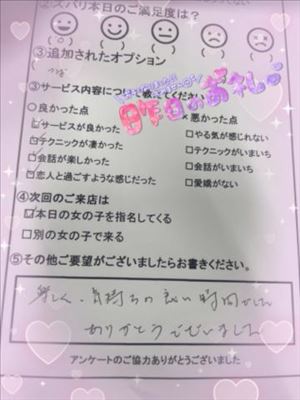 ②ズバリ本日のご満足度は？
③追加されたオプション
③サービス内容について教えてください
昨日のお礼
○良かった点
×悪かった点
サービスが良かった
□やる気が感じれない
テクニックが凄かった
□テクニックがいまいち
□会話が楽しかった
□会話がいまいち
□恋人と過ごすような感じだった
□愛嬌がない
④次回のご来店は
☑本日の女の子を指名してくる
□別の女の子で来る
⑤その他ご要望がございましたらお書きください。
楽しく、気持ちの良い時間でした
ありがとうございました
アンケートのご協力ありがとうございました